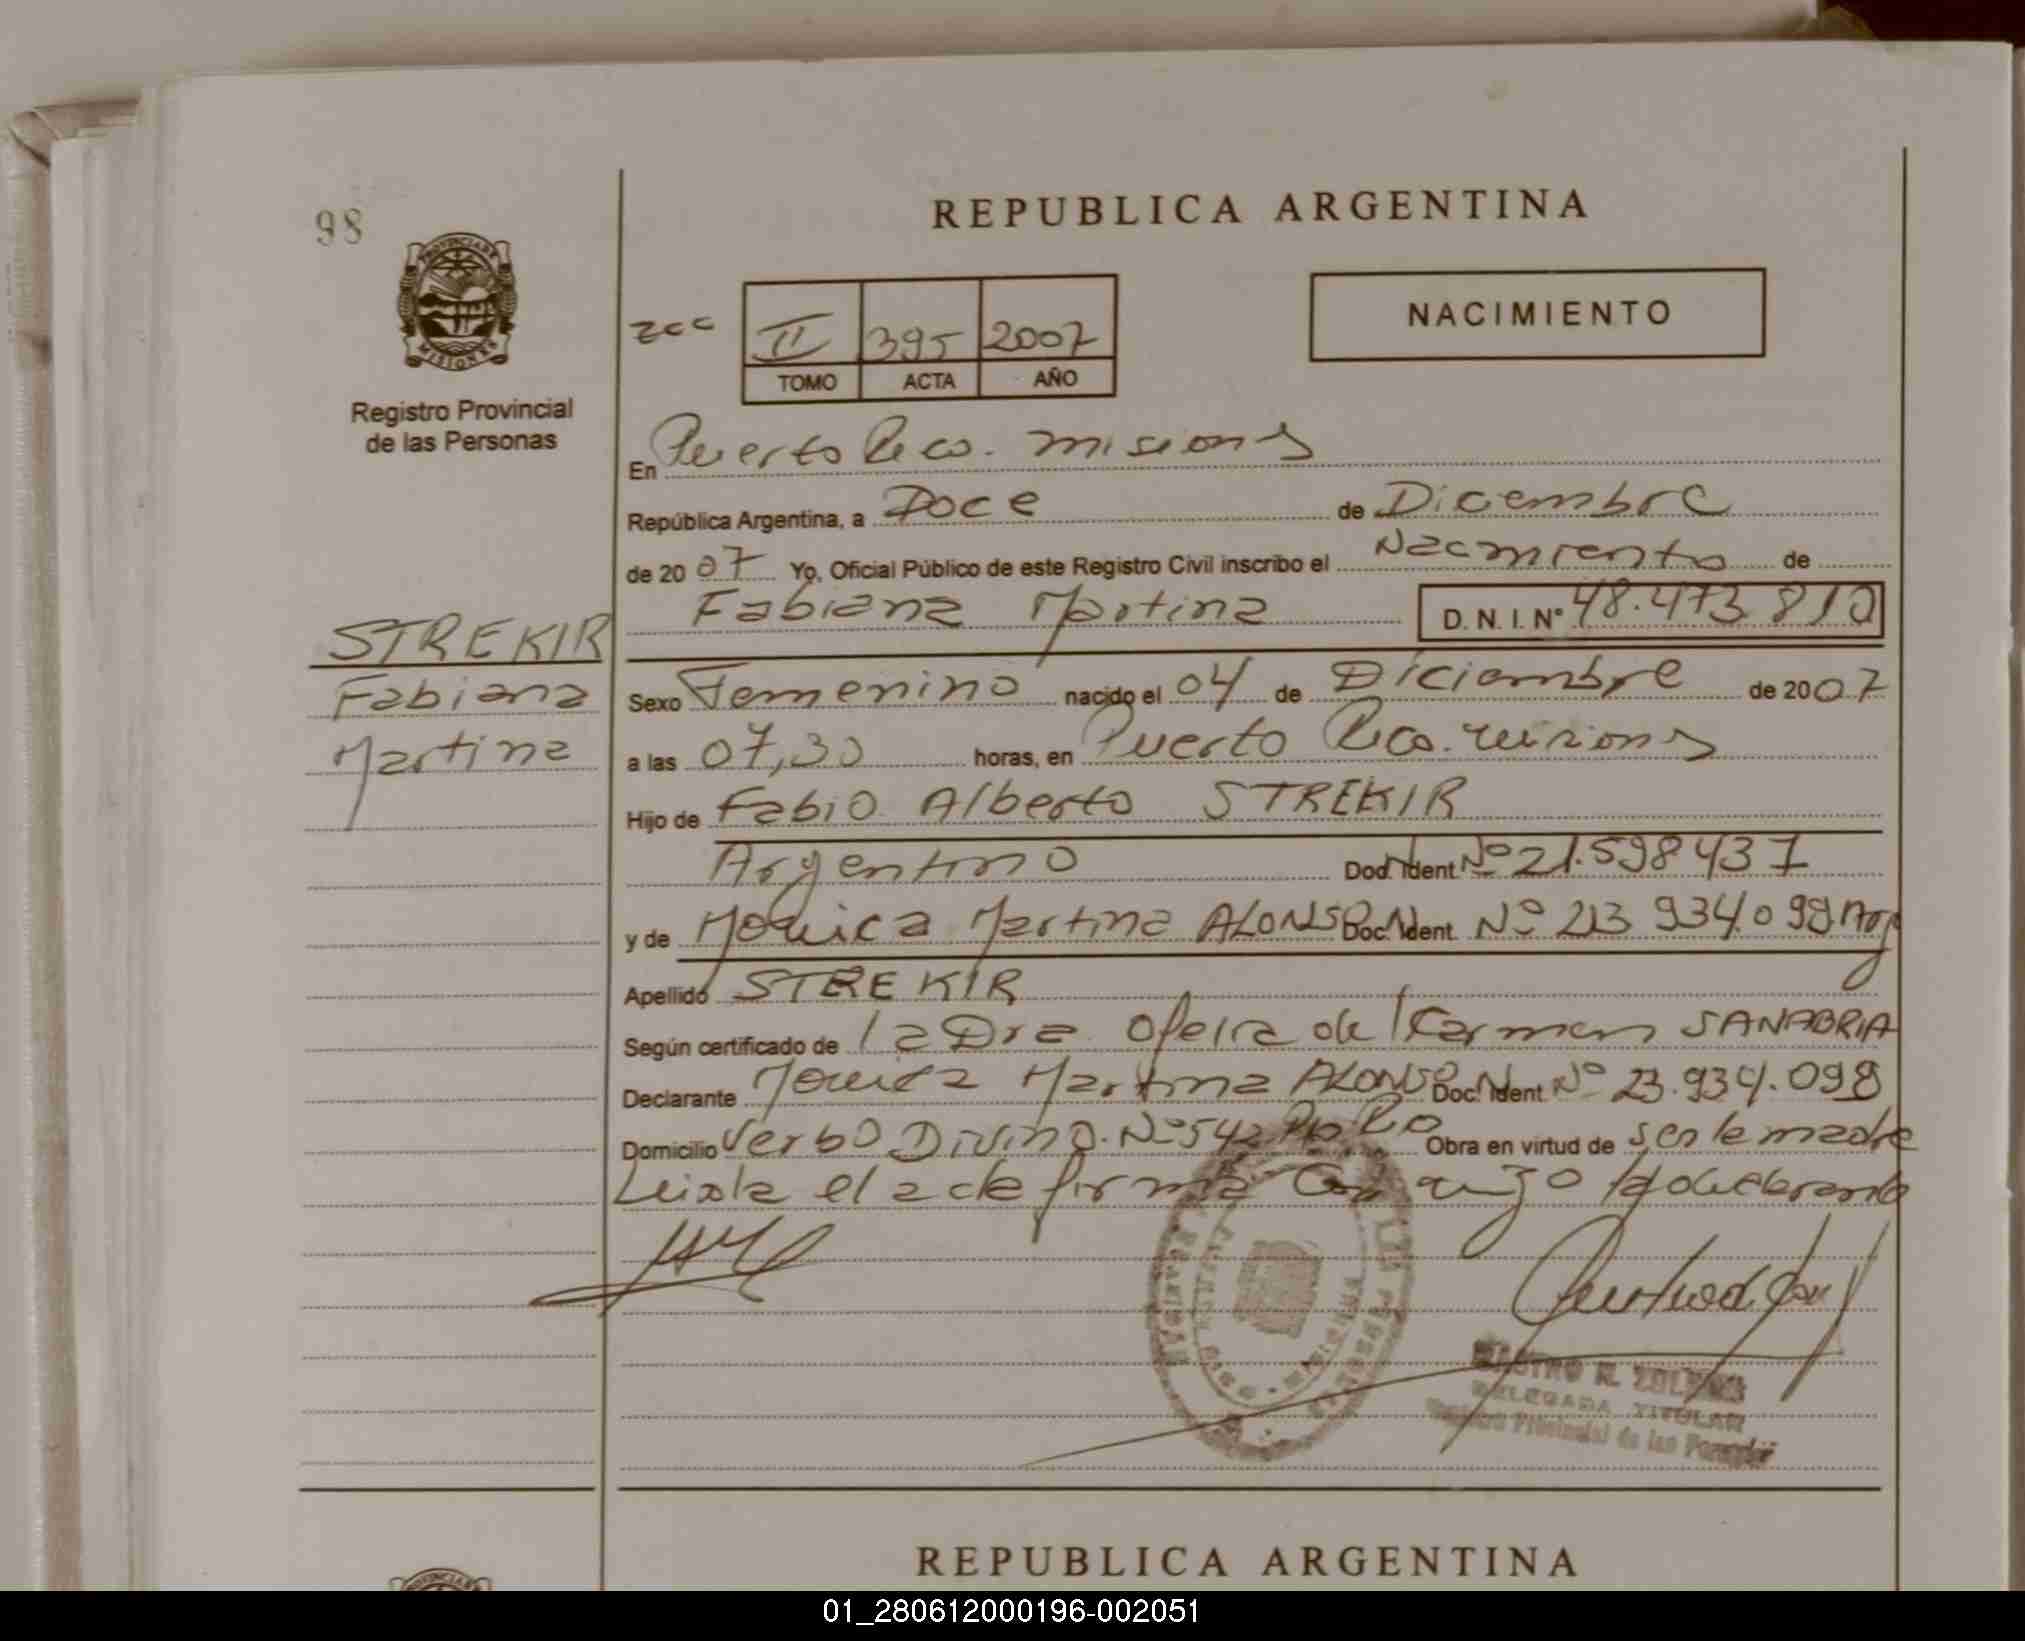 98
REPUBLICA ARGENTINA
PROVINCIA DE
MISIONES
Registro Provincial
de las Personas
II 395 2007
TOMO ACTA AÑO
NACIMIENTO
En Puerto Rico. Misiones
República Argentina, a Doce de Diciembre
de 2007 Yo, Oficial Público de este Registro Civil inscribo el Nacimiento de
Fabiana Martina D. N. I. Nº 48.473 810
STREKIR
Fabiana
Martina
Sexo Femenino nacido el 04 de Diciembre de 2007
a las 07,30 horas, en Puerto Rico. Misiones
Hijo de Fabio Alberto STREKIR
Argentino Doc. Ident. Nº 21.598 437
y de Monica Martina ALONSO Doc. Ident. Nº 23 934.098 Arg
Apellido STREKIR
Según certificado de la Dra. Ofelia del Carmen SANABRIA
Declarante Monica Martina ALONSO Doc. Ident. Nº 23.934.098
Domicilio Verbo Divino. Nº 542 Pto Rco Obra en virtud de ser la madre
Leida el acta firma conmigo la declarante
DELEGADA TITULAR
Registro Provincial de las Personas
REPUBLICA ARGENTINA
01_280612000196-002051